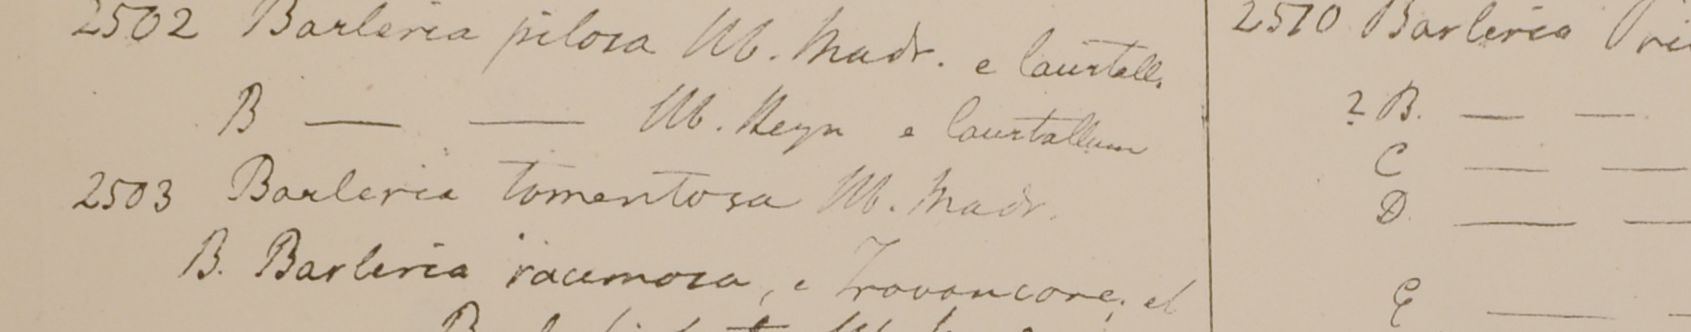 2502 Barleria pilosa Hb. Madr. e Courtall.
B — — Hb. Heyn e Courtallum
2503 Barleria tomentosa Hb. Madr.
B. Barleria racemosa, e Travancore, et
2510 Barleria
? B. — —
C — —
D. — —
E — —